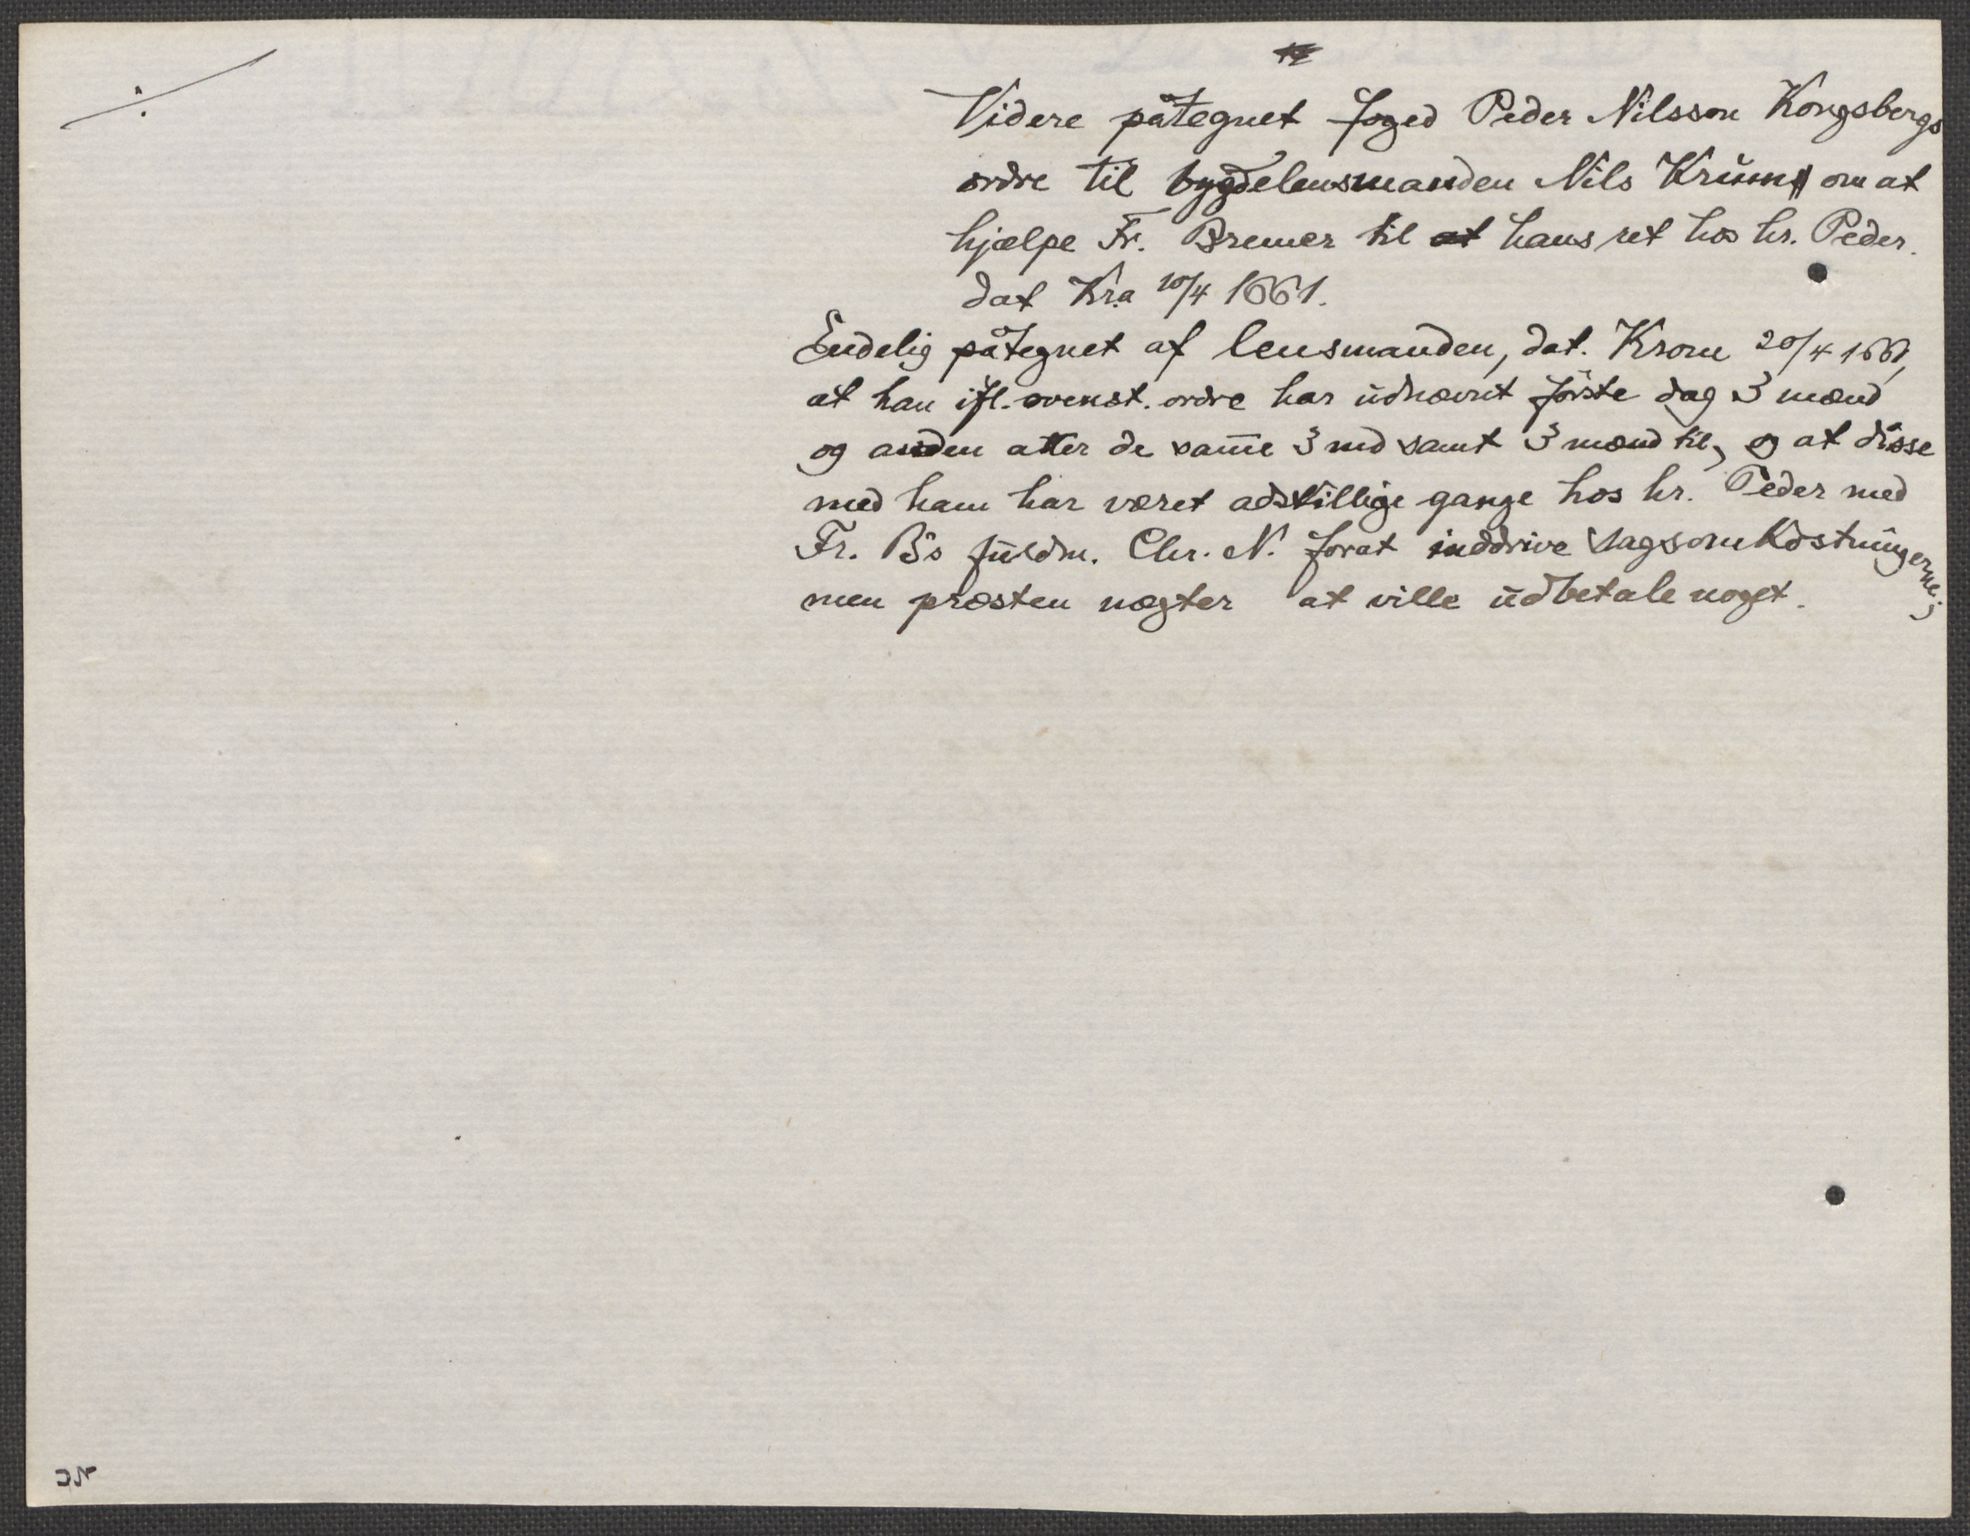 Videre påtegnet foged Peder Nilsson Kongsbergs
ordre til bygdelensmanden Nils Krüm om at
hjælpe Fr. Bremer til hans ret hos hr. Peder.
dat Kra 10/4 1661.
Endelig påtegnet af lensmanden, dat. Krom 20/4 1661,
at han ifl. ovenst. ordre har üdnævnt første dag 3 mænd
og anden atter de sam̅e 3 md samt 3 mænd til, og at disse
med ham har været adskillige gange hos hr. Peder med
Fr. B's füldm. Chr. N. forat inddrive sagsomkostningerne;
men præsten nægter at ville üdbetale noget.